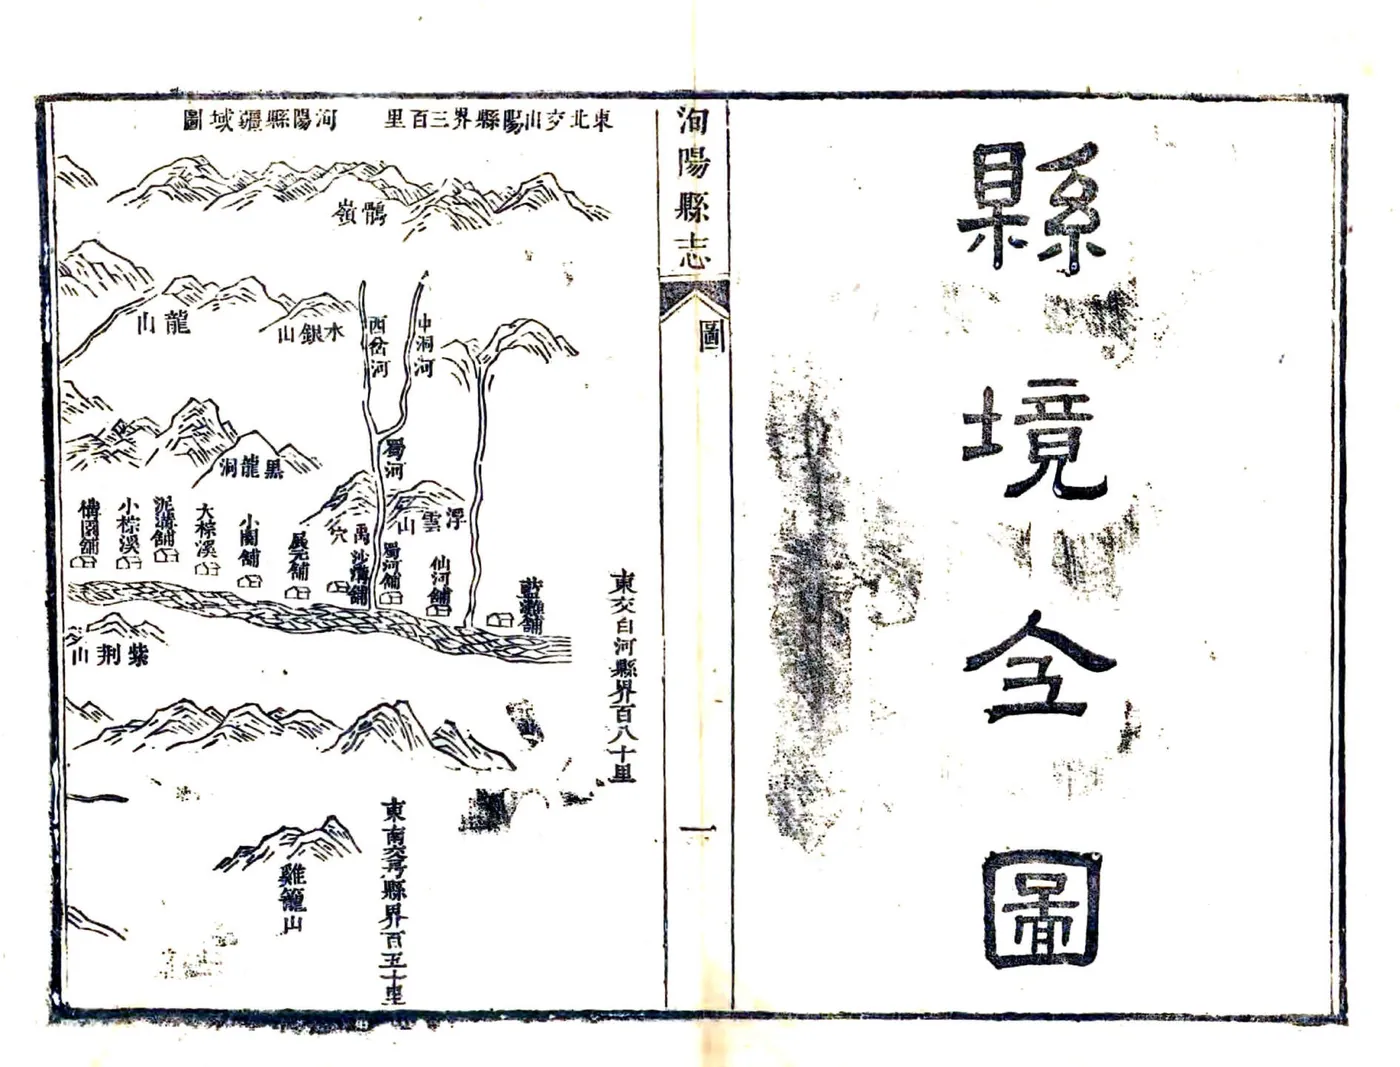 縣境全圖
洵陽縣志
圖
一
東北交山陽縣界三百里
河陽縣疆域圖
鶻嶺
龍山
水銀山
西岔河
中洞河
蜀河
黑龍洞
浮雲山
禹穴
構園舖
小棕溪
泥溝舖
大棕溪
小園舖
沙溝舖
蜀河舖
仙河舖
藍灘舖
東交白河縣界百八十里
紫荆山
雞籠山
東南交竹谿縣界百五十里